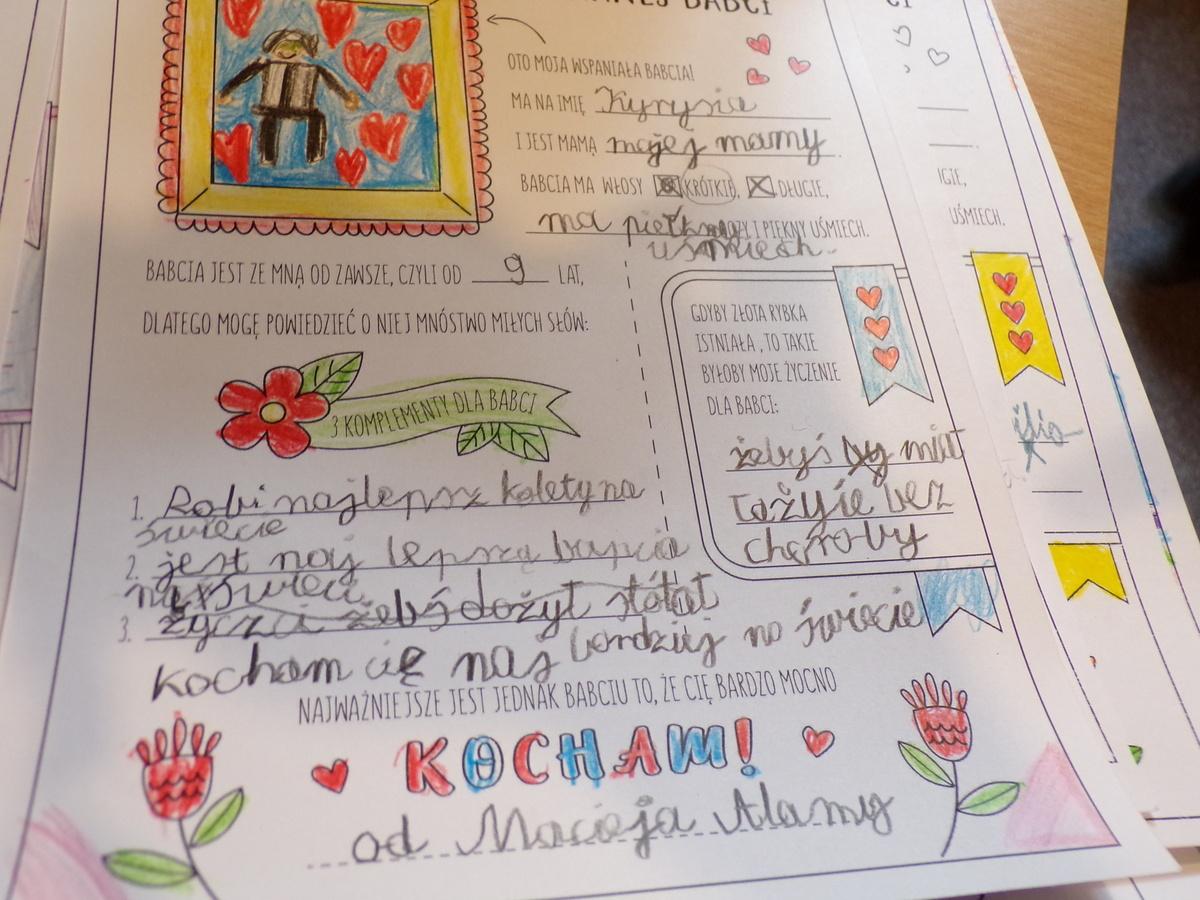 BABCI
OTO MOJA WSPANIAŁA BABCIA!
MA NA IMIĘ Kyrysia
I JEST MAMĄ mojej mamy.
BABCIA MA WŁOSY KRÓTKIE, DŁUGIE,
ma piękny I PIĘKNY UŚMIECH.
uśmiech.
BABCIA JEST ZE MNĄ OD ZAWSZE, CZYLI OD 9 LAT,
DLATEGO MOGĘ POWIEDZIEĆ O NIEJ MNÓSTWO MIŁYCH SŁÓW:
3 KOMPLEMENTY DLA BABCI
1. Robi najlepsz kolety na
świecie
2. jest naj lepszą bapcia
na świeci
3. życzi żebś dożył stólat
kocham cię naj bardziej na świecie
GDYBY ZŁOTA RYBKA
ISTNIAŁA, TO TAKIE
BYŁOBY MOJE ŻYCZENIE
DLA BABCI:
żebyś by miła
tożyie bez
choroby
NAJWAŻNIEJSZE JEST JEDNAK BABCIU TO, ŻE CIĘ BARDZO MOCNO
KOCHAM!
od Macieja Alamy
CI
IGIE,
UŚMIECH.